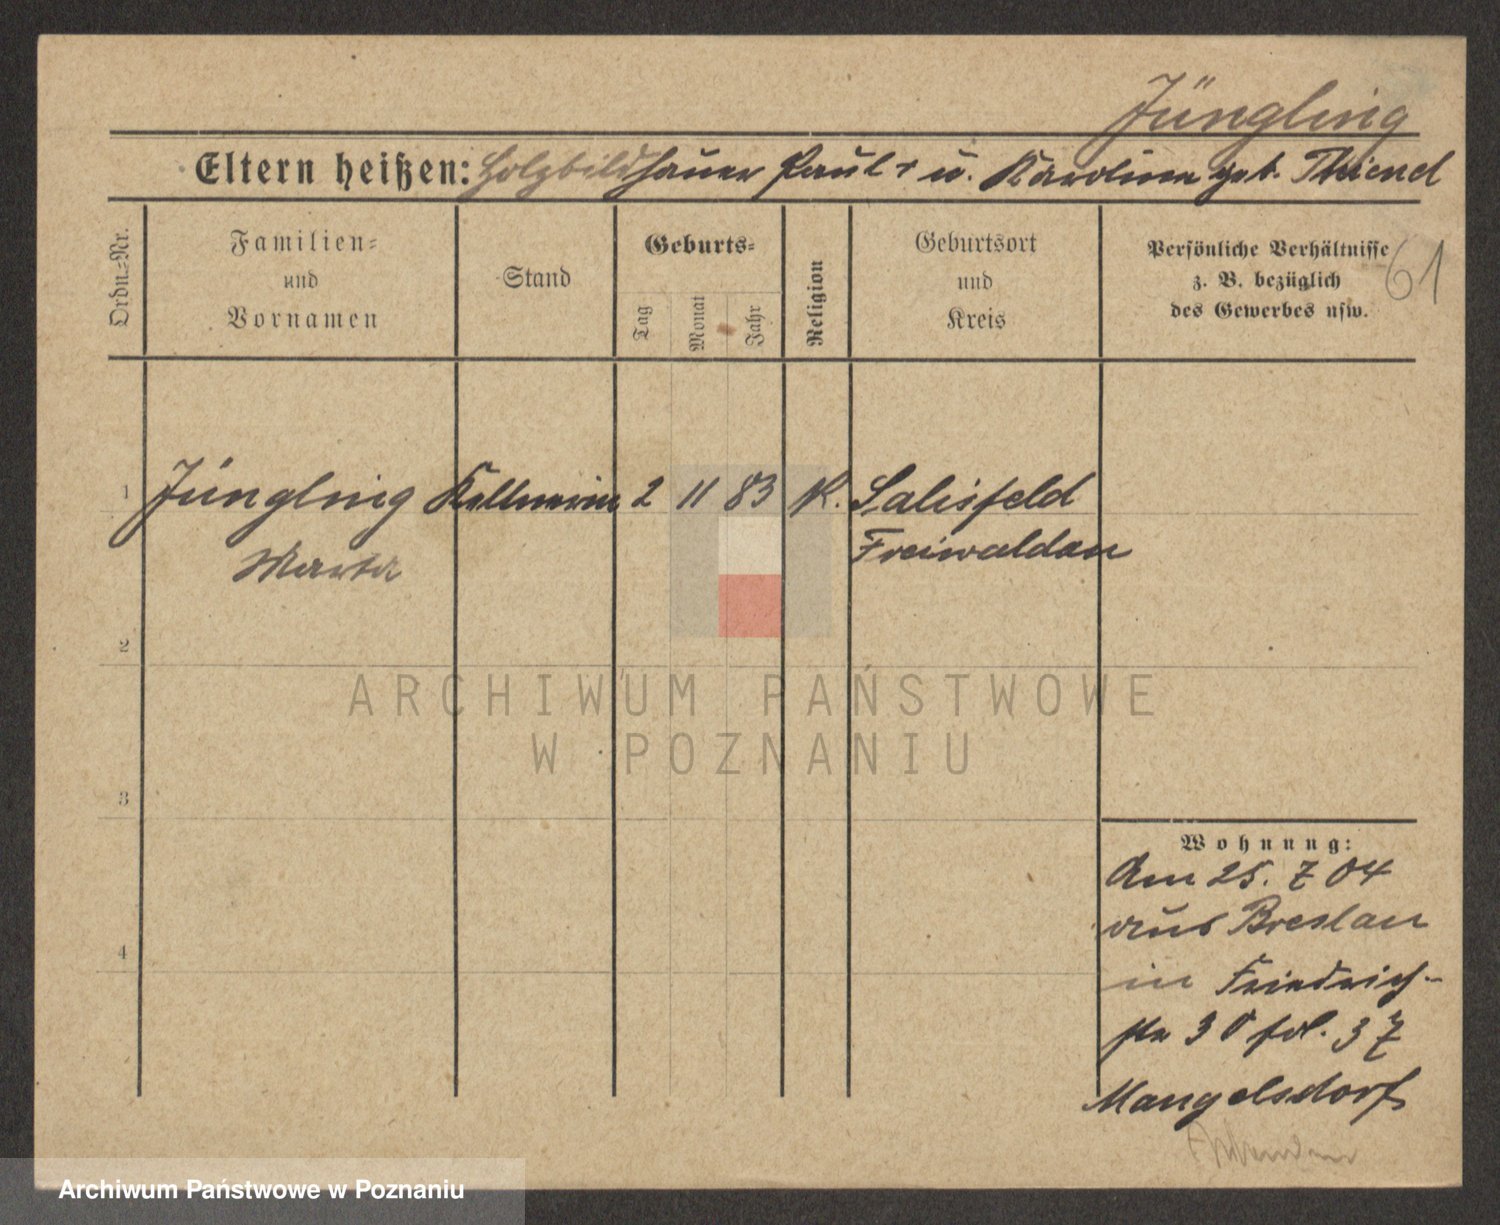 Jüngling
Eltern heißen: Holzbildhauer Paul † u. Karoline geb. Thienel
Ordn.-Nr.
Familien-
und
Vornamen
Stand
Geburts-
Tag
Monat
Jahr
Religion
Geburtsort
und
Kreis
Persönliche Verhältnisse
z. B. bezüglich
des Gewerbes usw.
61
1 Jüngling Kellnerin 2 11 83 K. Salisfeld
Marta Freiwaldau
2
ARCHIWUM PAŃSTWOWE
W POZNANIU
3
Wohnung:
Am 25. 7 04
aus Breslau
4
in Friedrich-
str 30 fol. 37
Mangelsdorf
Archiwum Państwowe w Poznaniu